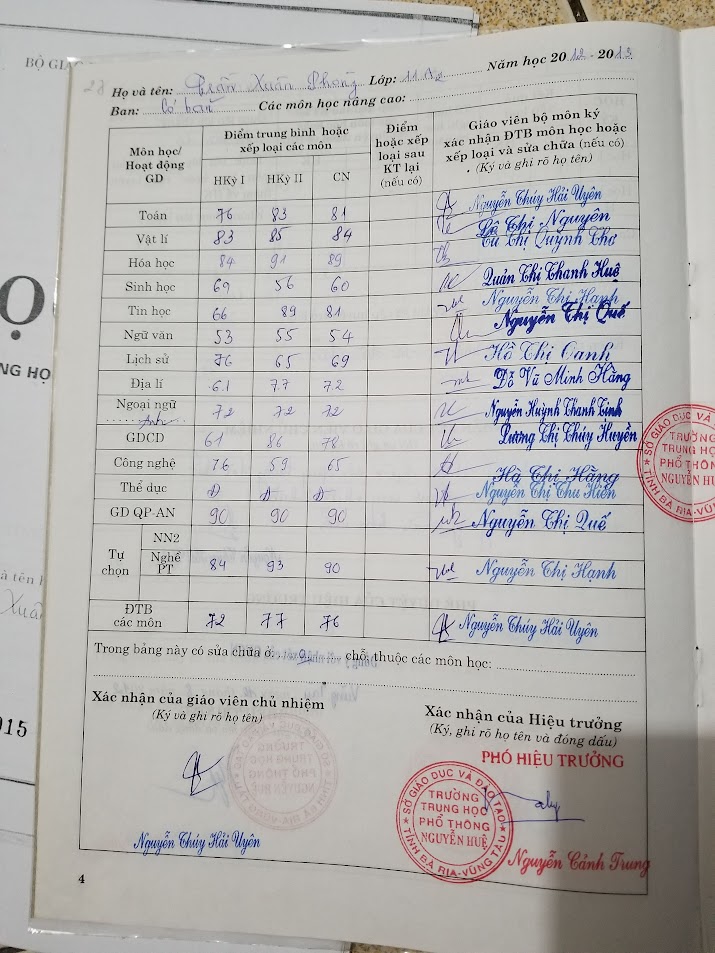 BỘ GIÁO
28
Họ và tên: Trần Xuân Phong Lớp: 11A2 Năm học 2012 - 2013
Ban: Cơ bản Các môn học nâng cao:
Môn học/ Hoạt động GD
Điểm trung bình hoặc xếp loại các môn
HKỳ I HKỳ II CN
Điểm hoặc xếp loại sau KT lại (nếu có)
Giáo viên bộ môn ký xác nhận ĐTB môn học hoặc xếp loại và sửa chữa (nếu có)
(Ký và ghi rõ họ tên)
Toán 76 83 81 Nguyễn Thúy Hải Uyên
Lê Thị Nguyên
Vật lí 83 85 84 Cù Thị Quỳnh Thơ
Hóa học 84 91 89 Quản Thị Thanh Huệ
Sinh học 69 56 60 Nguyễn Thị Hạnh
Tin học 66 89 81 Nguyễn Thị Quế
Ngữ văn 53 55 54 Hồ Thị Oanh
Lịch sử 76 65 69
Địa lí 61 77 72 Đỗ Vũ Minh Hằng
Ngoại ngữ Anh 72 72 72 Nguyễn Huỳnh Thanh
GDCD 61 86 78 Lương Thị Thúy Huyền
Công nghệ 76 59 65 Hà Thị Hằng
Thể dục Đ Đ Đ Nguyễn Thị Thu Hiền
GD QP-AN 90 90 90 Nguyễn Thị Quế
Tự chọn
NN2
Nghề PT 84 93 90 Nguyễn Thị Hạnh
ĐTB các môn 72 77 76 Nguyễn Thúy Hải Uyên
Trong bảng này có sửa chữa ở: chỗ, thuộc các môn học:
Xác nhận của giáo viên chủ nhiệm
(Ký và ghi rõ họ tên)
Nguyễn Thúy Hải Uyên
Xác nhận của Hiệu trưởng
(Ký, ghi rõ họ tên và đóng dấu)
PHÓ HIỆU TRƯỞNG
SỞ GIÁO DỤC VÀ ĐÀO TẠO
TRƯỜNG
TRUNG HỌC
PHỔ THÔNG
NGUYỄN HUỆ
TỈNH BÀ RỊA-VŨNG TÀU
Nguyễn Cảnh Trung
4
SỞ GIÁO DỤC VÀ
TRƯỜNG
TRUNG HỌC
PHỔ THÔNG
NGUYỄN HUỆ
TỈNH BÀ RỊA-VŨNG
Ọ
NG HỌ
à tên
Xuân
015